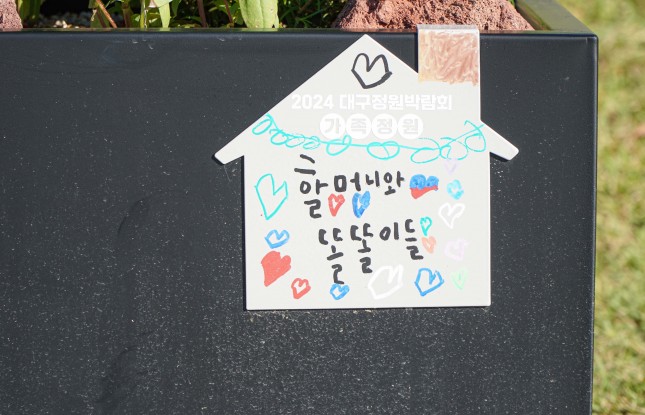 2024 대구정원박람회
가족정원
할머니와
똘똘이들